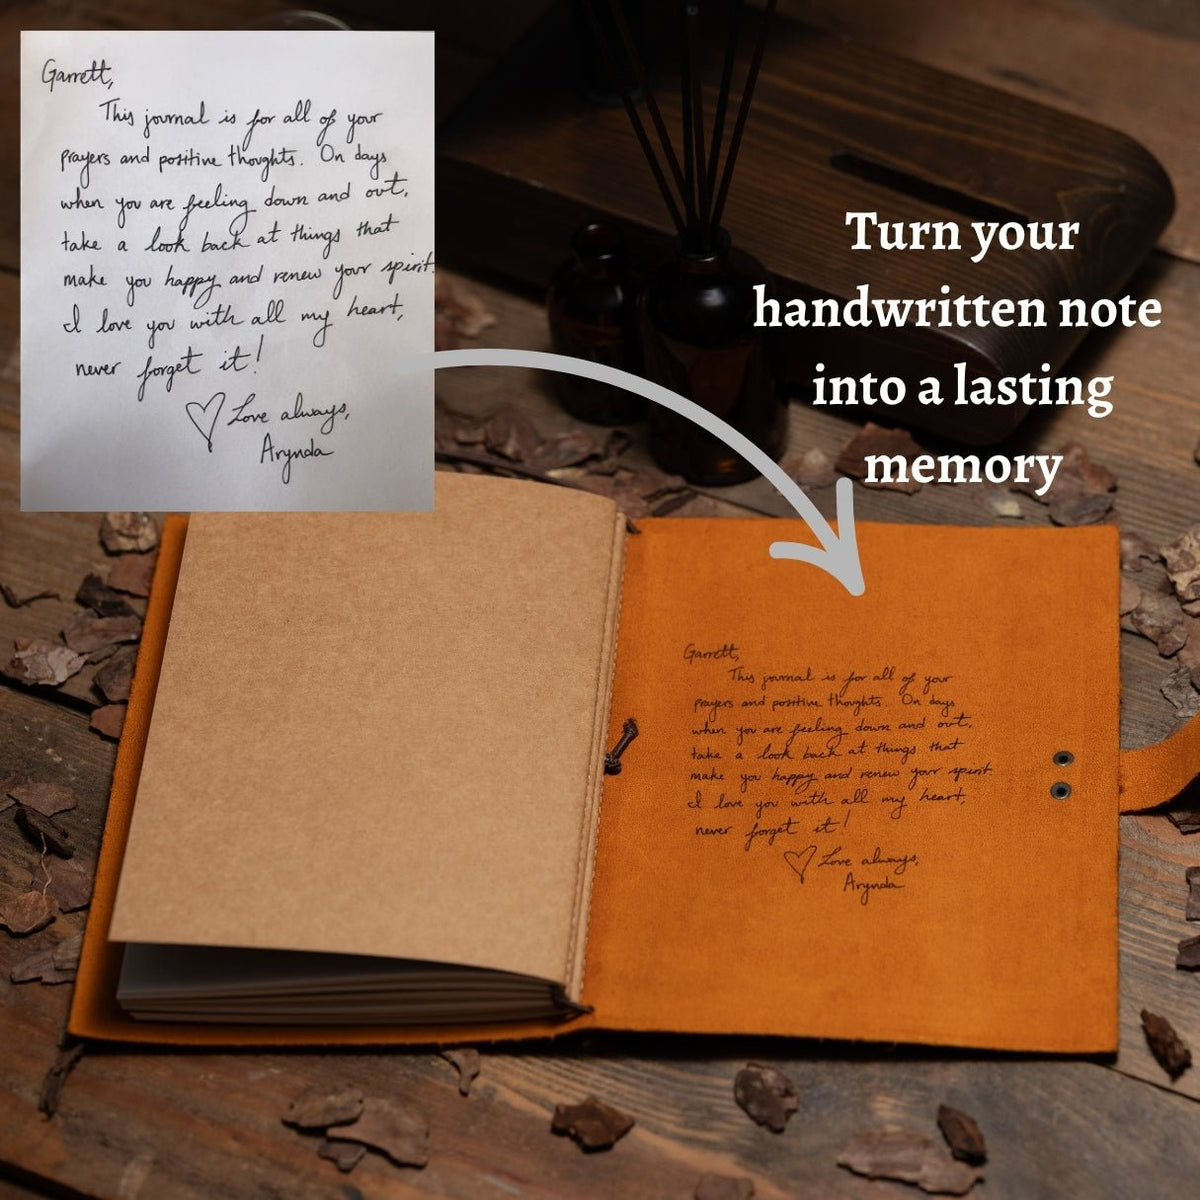 Garrett,
This journal is for all of your
prayers and positive thoughts. On days
when you are feeling down and out,
take a look back at things that
make you happy and renew your spirit.
I love you with all my heart,
never forget it!
Love always,
Arynda
Turn your
handwritten note
into a lasting
memory
Garrett,
This journal is for all of your
prayers and positive thoughts. On days
when you are feeling down and out,
take a look back at things that
make you happy and renew your spirit.
I love you with all my heart,
never forget it!
Love always,
Arynda